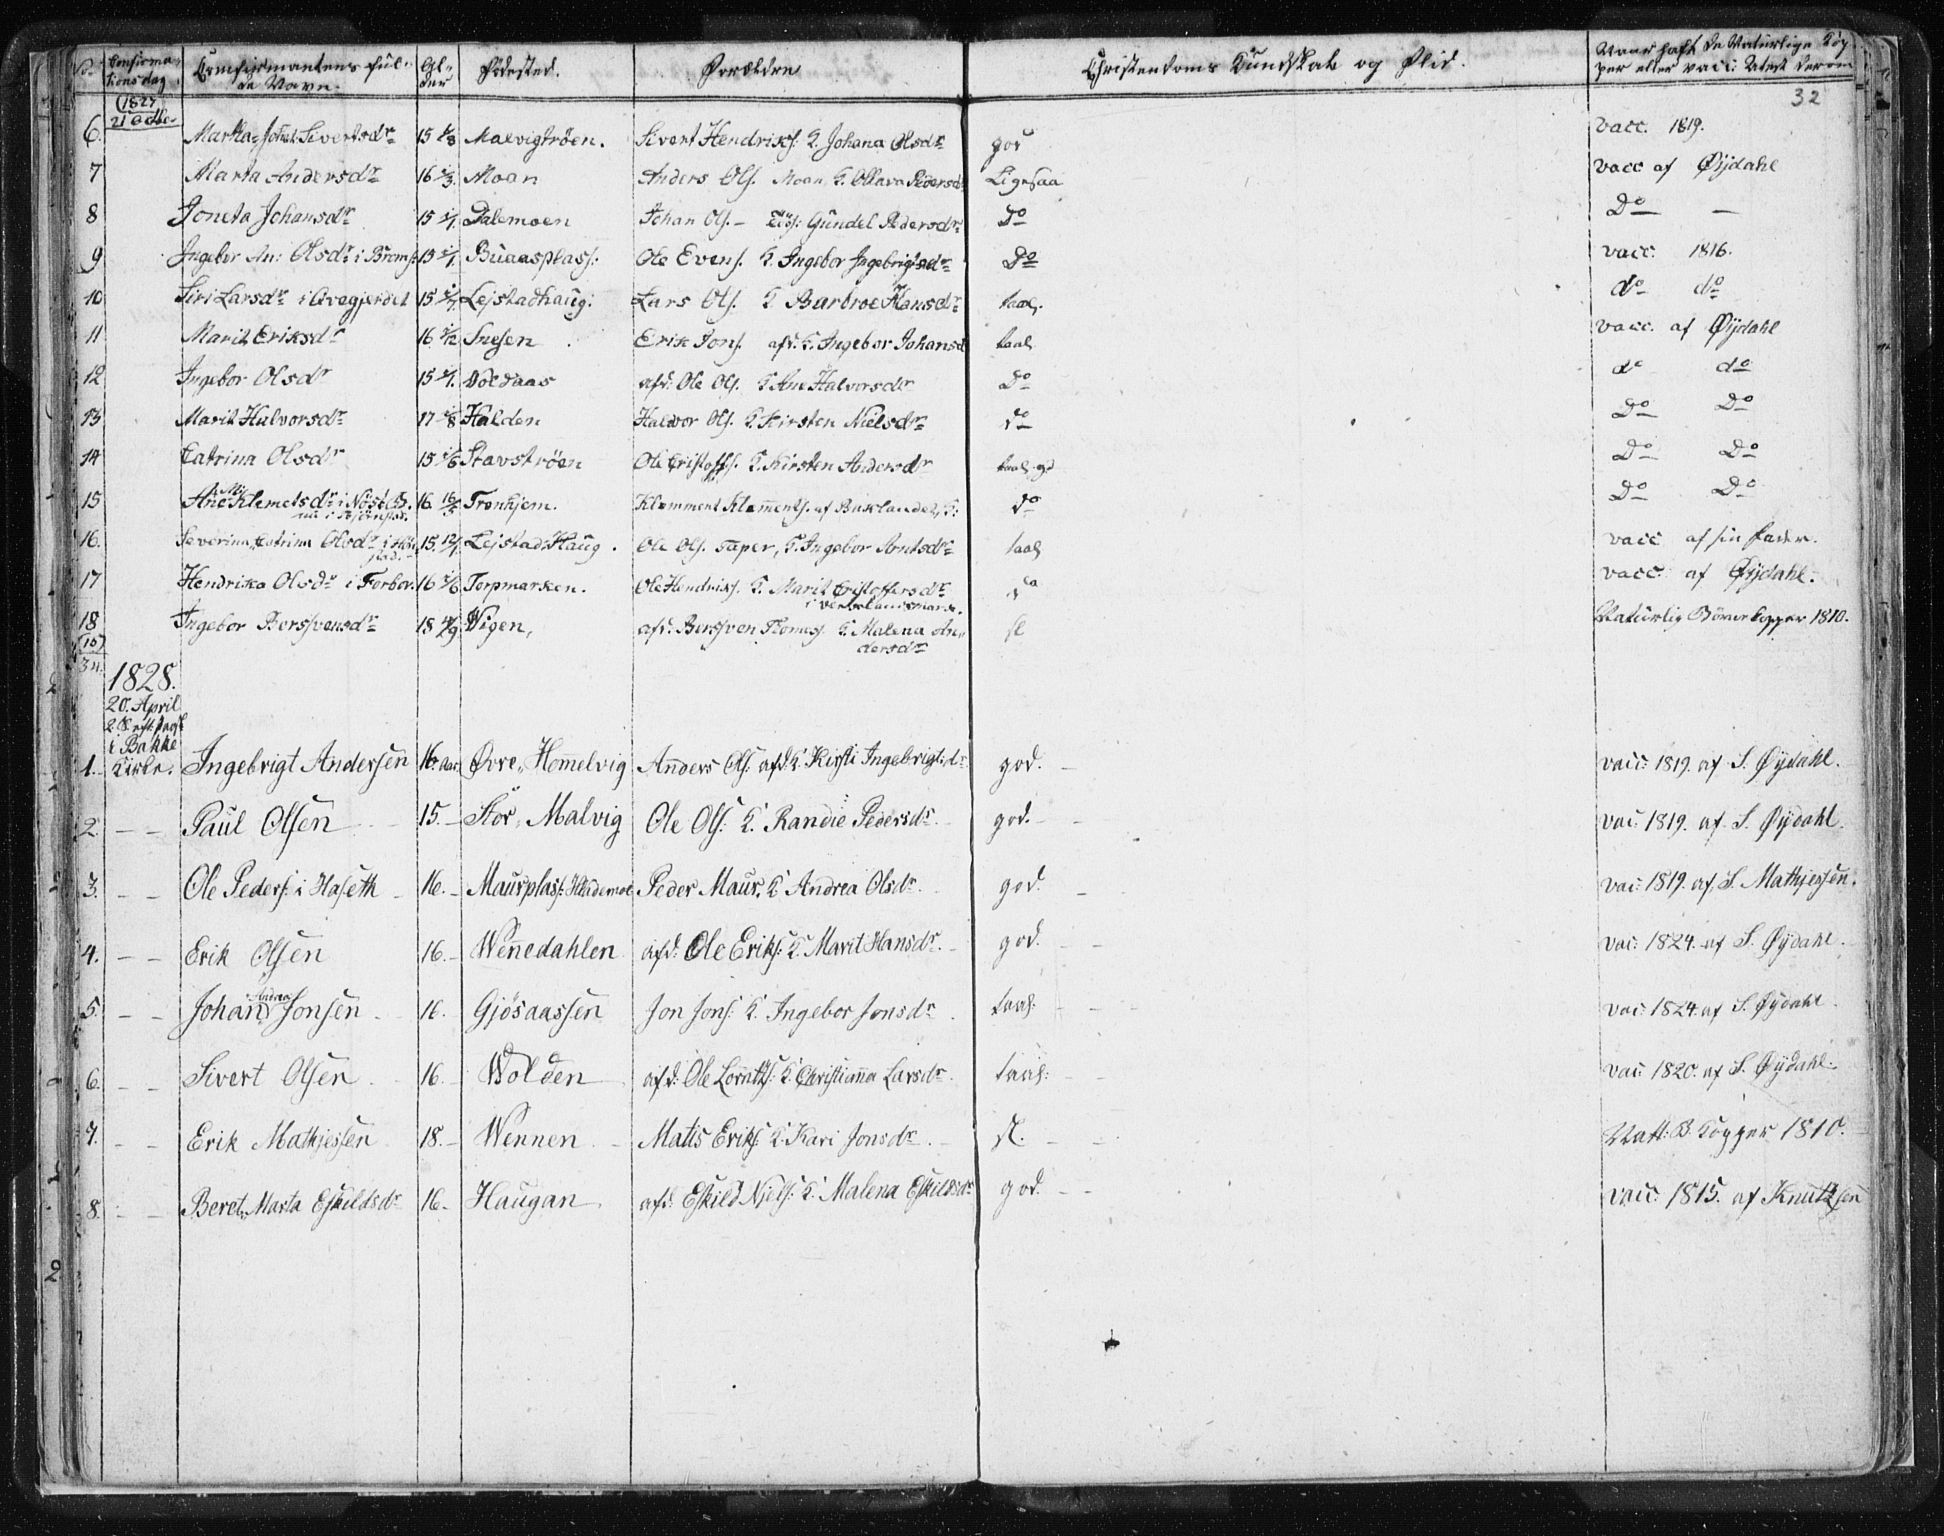 No. Confirmationsdag. Confirmantens fulde Navn. Alder Fødested. Forældre Christendoms Kundskab og Flid. Naar haft de Naturlige Kopper eller vacc: Attest derom
32
(1827
21 Octbr
6. Martha Sivertsdr 15 Malvigtrøen. Sivert Hendriks: K. Johana Olsdr god vacc. 1819.
7 Marta Andersdr 16 Moan Anders Ols. Moan, K. Ollava Pedersd Ligesaa vacc af Øijdahl
8 Joneta Johansdr 15 Dalemoen Johan Ols. – Gundel Pedersdr Do Do —
9 Ingebor An: Olsdr i 15 Buaasplass: Ole Evens. K. Ingebor Ingebrigtsdr Do vacc. 1816.
10 Siri Larsdr i 15 Lejstadhaug: Lars Ols. K Barbroe Hansdr taal. do do
11 Marit Eriksdr 16 Snesen Erik Jons. afd: K. Ingebor Johansd taal vacc. af Øijdahl
12 Ingebor Olsdr 15 afd: Ole Ols. K Ane Halvorsdr Do do do
13 Marit Halvorsdr 17 Halden Halvor Ols. K. Kirsten Nielsdr do Do Do
14 Catrina Olsdr 15 Stavstrøen Ole Cristoffs. K. Kirsten Andersdr taal. gd Do Do
15 Ane Klemetsdr i 16. Tronhjem. Klemment Klemments. af do Do Do
16. Severina Catrina Olsdr i 15. Lejstad Haug. Ole Ols. K. Ingebor Arntsdr taal vacc af sin Fader.
17 Hendrika Olsdr i Forbor. 16 Torpmarken. Ole Hendriks. K. Marit Cristoffersdr do vacc. af Øijdahl.
18 Ingebor Berssvensdr 18 Wigen, afd: Berssven Tomes. K. Malena An- sl Naturlig Børnekopper 1810.
dersdr
1828.
20. April
i Bakke
1. Kirke. Ingebrigt Andersen 16. Aar Øvre Homelvig Anders Ols: afd: K: Kirsti Ingebrigtsdr god. – vacc: 1819. af S. Øijdahl.
2. – – Paul Olsen 15. – Stor, Malvig Ole Ols: K: Randie Pedersdr god. – – vac: 1819. af S. Øijdahl.
3. – – Ole Peders: i Haseth 16. – Maurplass: Peder Maur, K: Andrea Olsdr. god. – vac: 1819. af S. Mathjessen.
4. – – Erik Olsen 16. – Wennedahlen afd: Ole Eriks: K: Marit Hansdr. – god. – – vac: 1824. af S. Øijdahl.
5. – – Johan Andrea Jonsen 16. Gjøsaassen Jon Jons: K: Ingebor Jonsdr. taal: – – vac: 1824. af S. Øijdahl
6. – – Sivert Olsen 16. Wolden afd: Ole Lorntzs: K: Christianna Larsdr. taal: – – vac: 1820. af S. Øijdahl.
7. – – Erik Mathjessen 18. – Wennen – Matis Eriks: K: Kari Jonsdr. – sl. – – Natt: B. Kopper 1810.
8. – – Beret Marta Eskildsdr 16. Haugan. afd: Eskild Niels: K: Malena Eskildsdr god. – – vacc: 1815. af Knutzsen